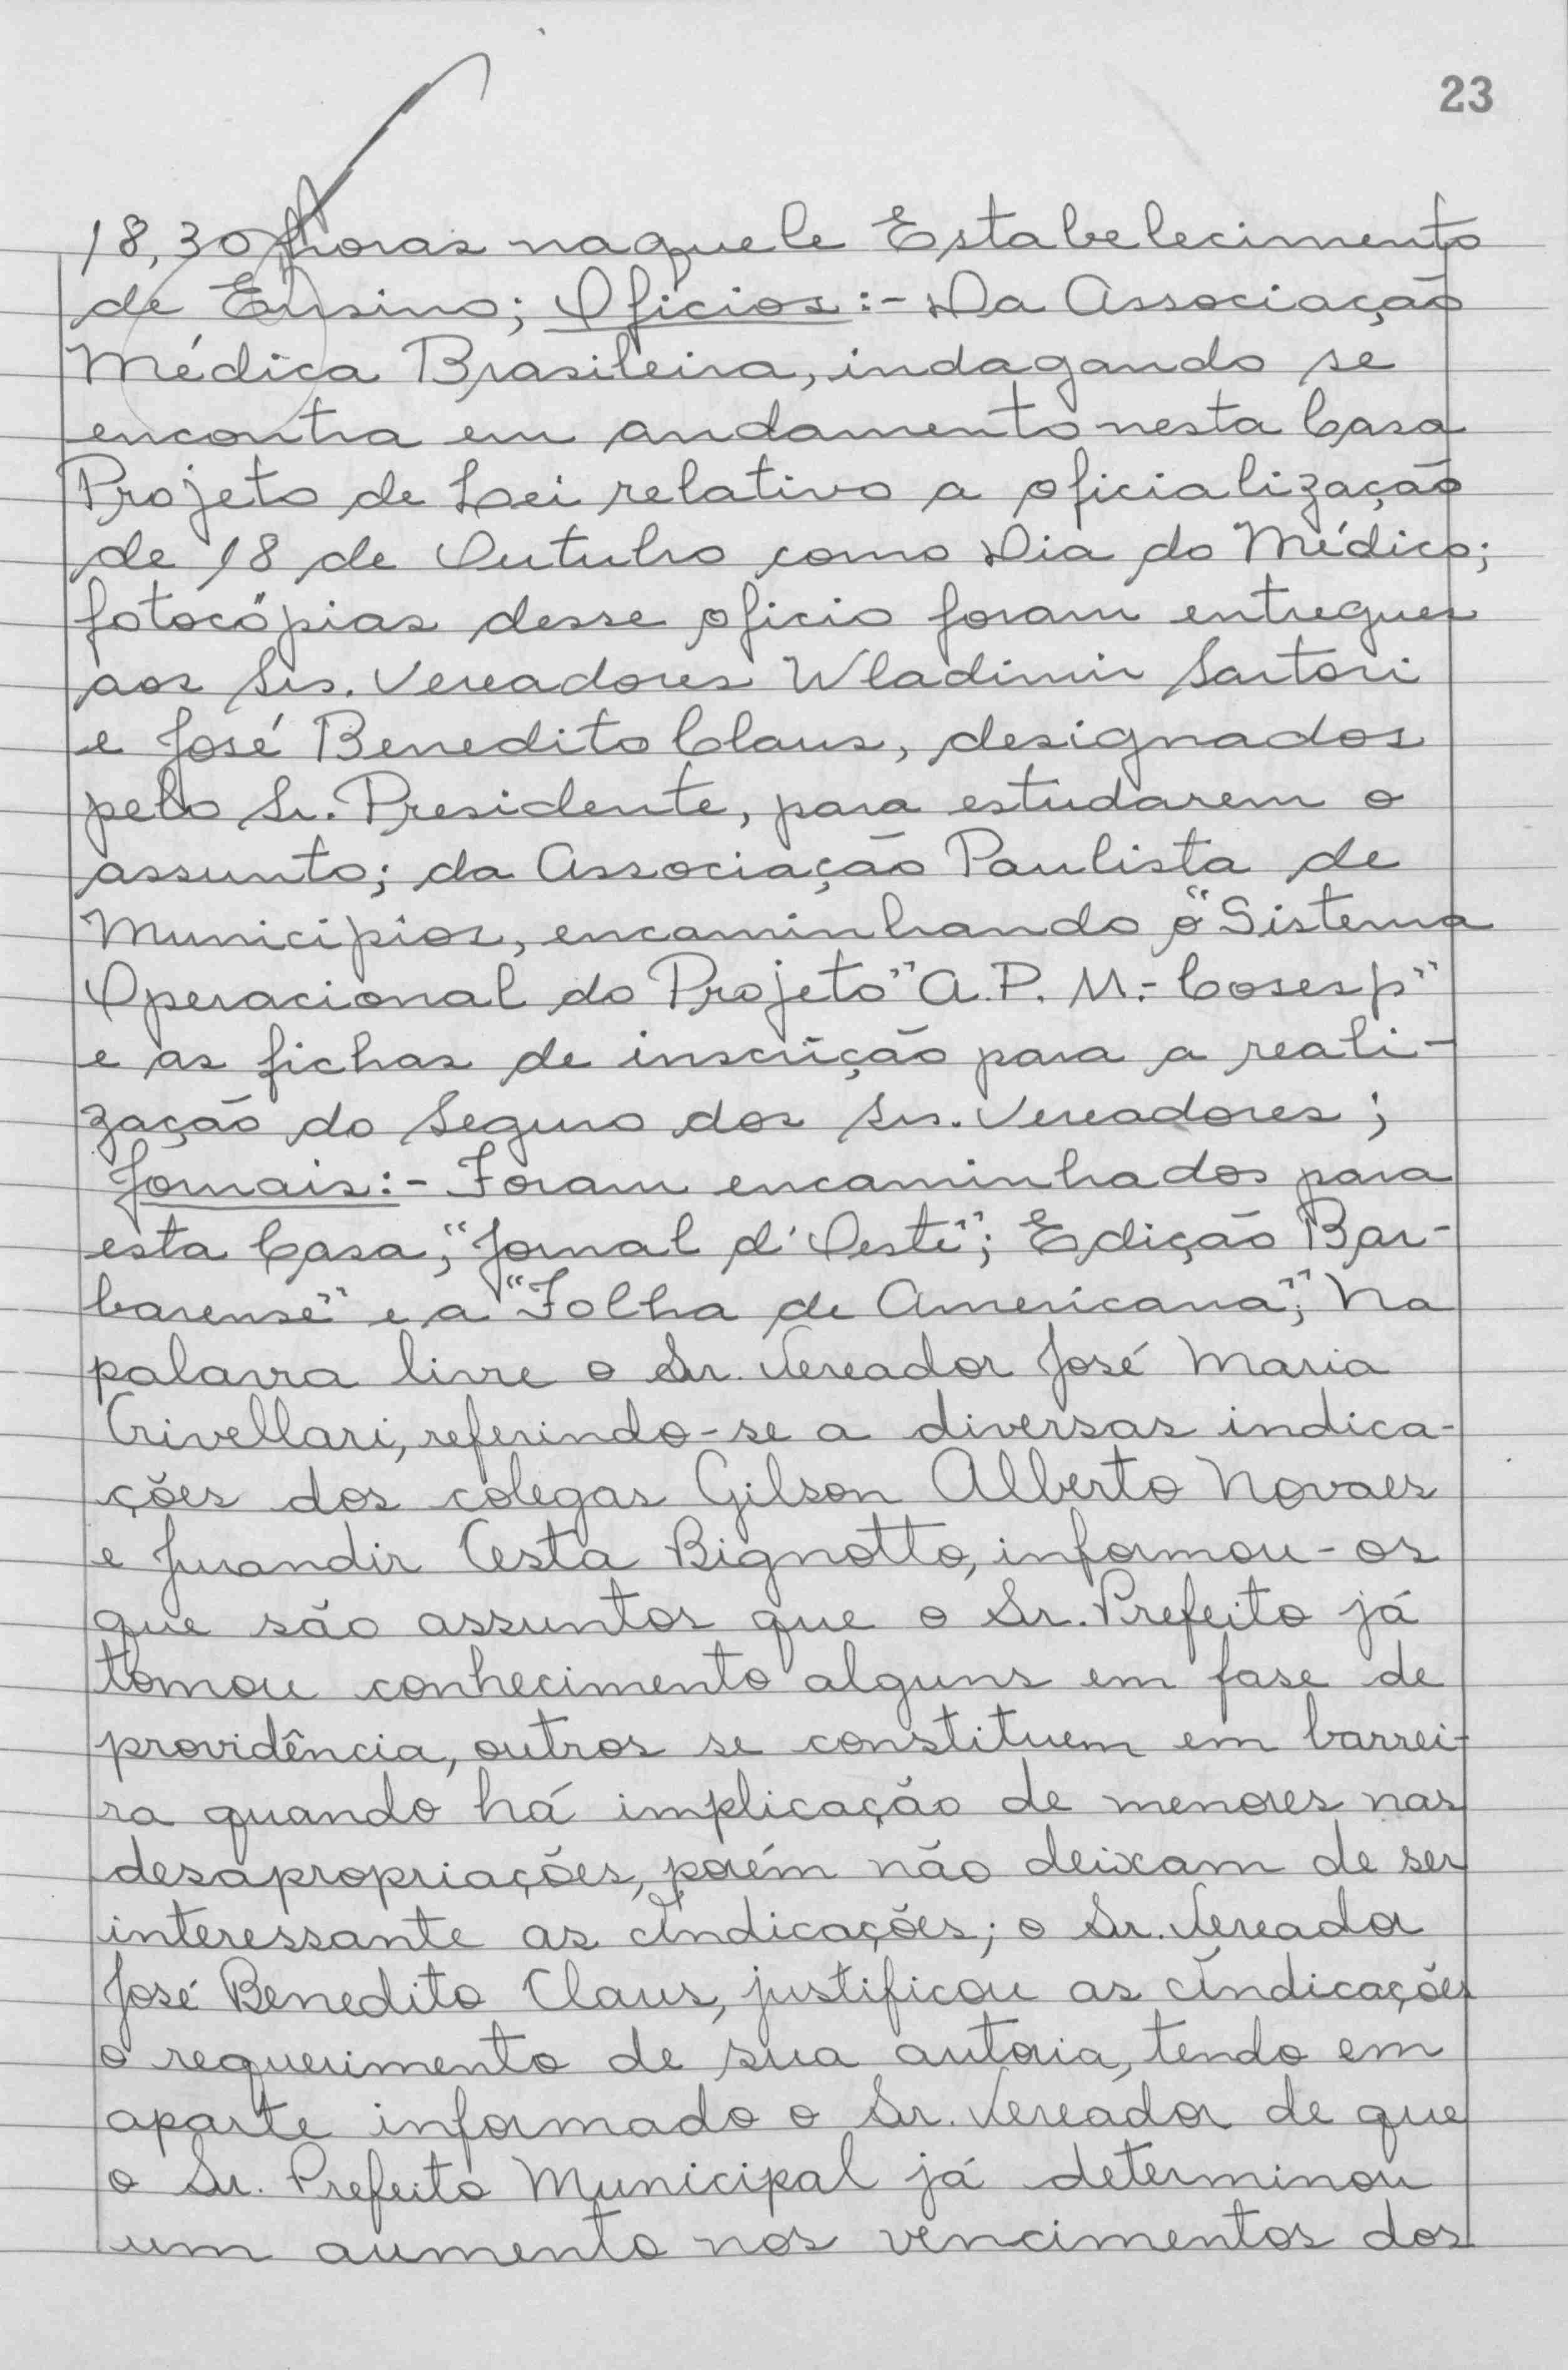 23
18,30 horas naquele Estabelecimento
de Ensino; Oficios:- Da Associação
Médica Brasileira, indagando se
encontra em andamento nesta Casa
Projeto de Lei relativo a oficialização
de 18 de Outubro como Dia do Médico;
fotocópias desse oficio foram entregues
aos Srs. Vereadores Wladimir Sartori
e José Benedito Claus, designados
pelo Sr. Presidente, para estudarem o
assunto; da Associação Paulista de
Municipios, encaminhando o "Sistema
Operacional do Projeto" A.P.M.- Cosesp"
e as fichas de inscrição para a reali-
zação do Seguro dos Srs. Vereadores;
Jornais:- Foram encaminhados para
esta Casa, "Jornal d'Oeste"; Edição Bar-
barense" e a "Folha de Americana"; Na
palavra livre o Sr. Vereador José Maria
Crivellari, referindo-se a diversas indica-
ções dos colegas Gilson Alberto Novaes
e Jurandir Cesta Bignotto, informou-os
que são assuntos que o Sr. Prefeito já
tomou conhecimento alguns em fase de
providência, outros se constituem em barrei-
ra quando há implicação de menores nas
desapropriações, porém não deixam de ser
interessante as indicações; o Sr. Vereador
José Benedito Claus, justificou as indicações
o requerimento de sua autoria, tendo em
aparte informado o Sr. Vereador de que
o Sr. Prefeito Municipal já determinou
um aumento nos vencimentos dos